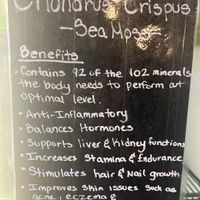 Chondrus Crispus
-Sea Moss-
Benefits
• Contains 92 of the 102 minerals
the body needs to perform at
optimal level.
• Anti-Inflammatory
• Balances Hormones
• Supports liver & kidney functions
• Increases Stamina & Endurance
• Stimulates hair & Nail growth
• Improves Skin issues such as
acne, eczema &